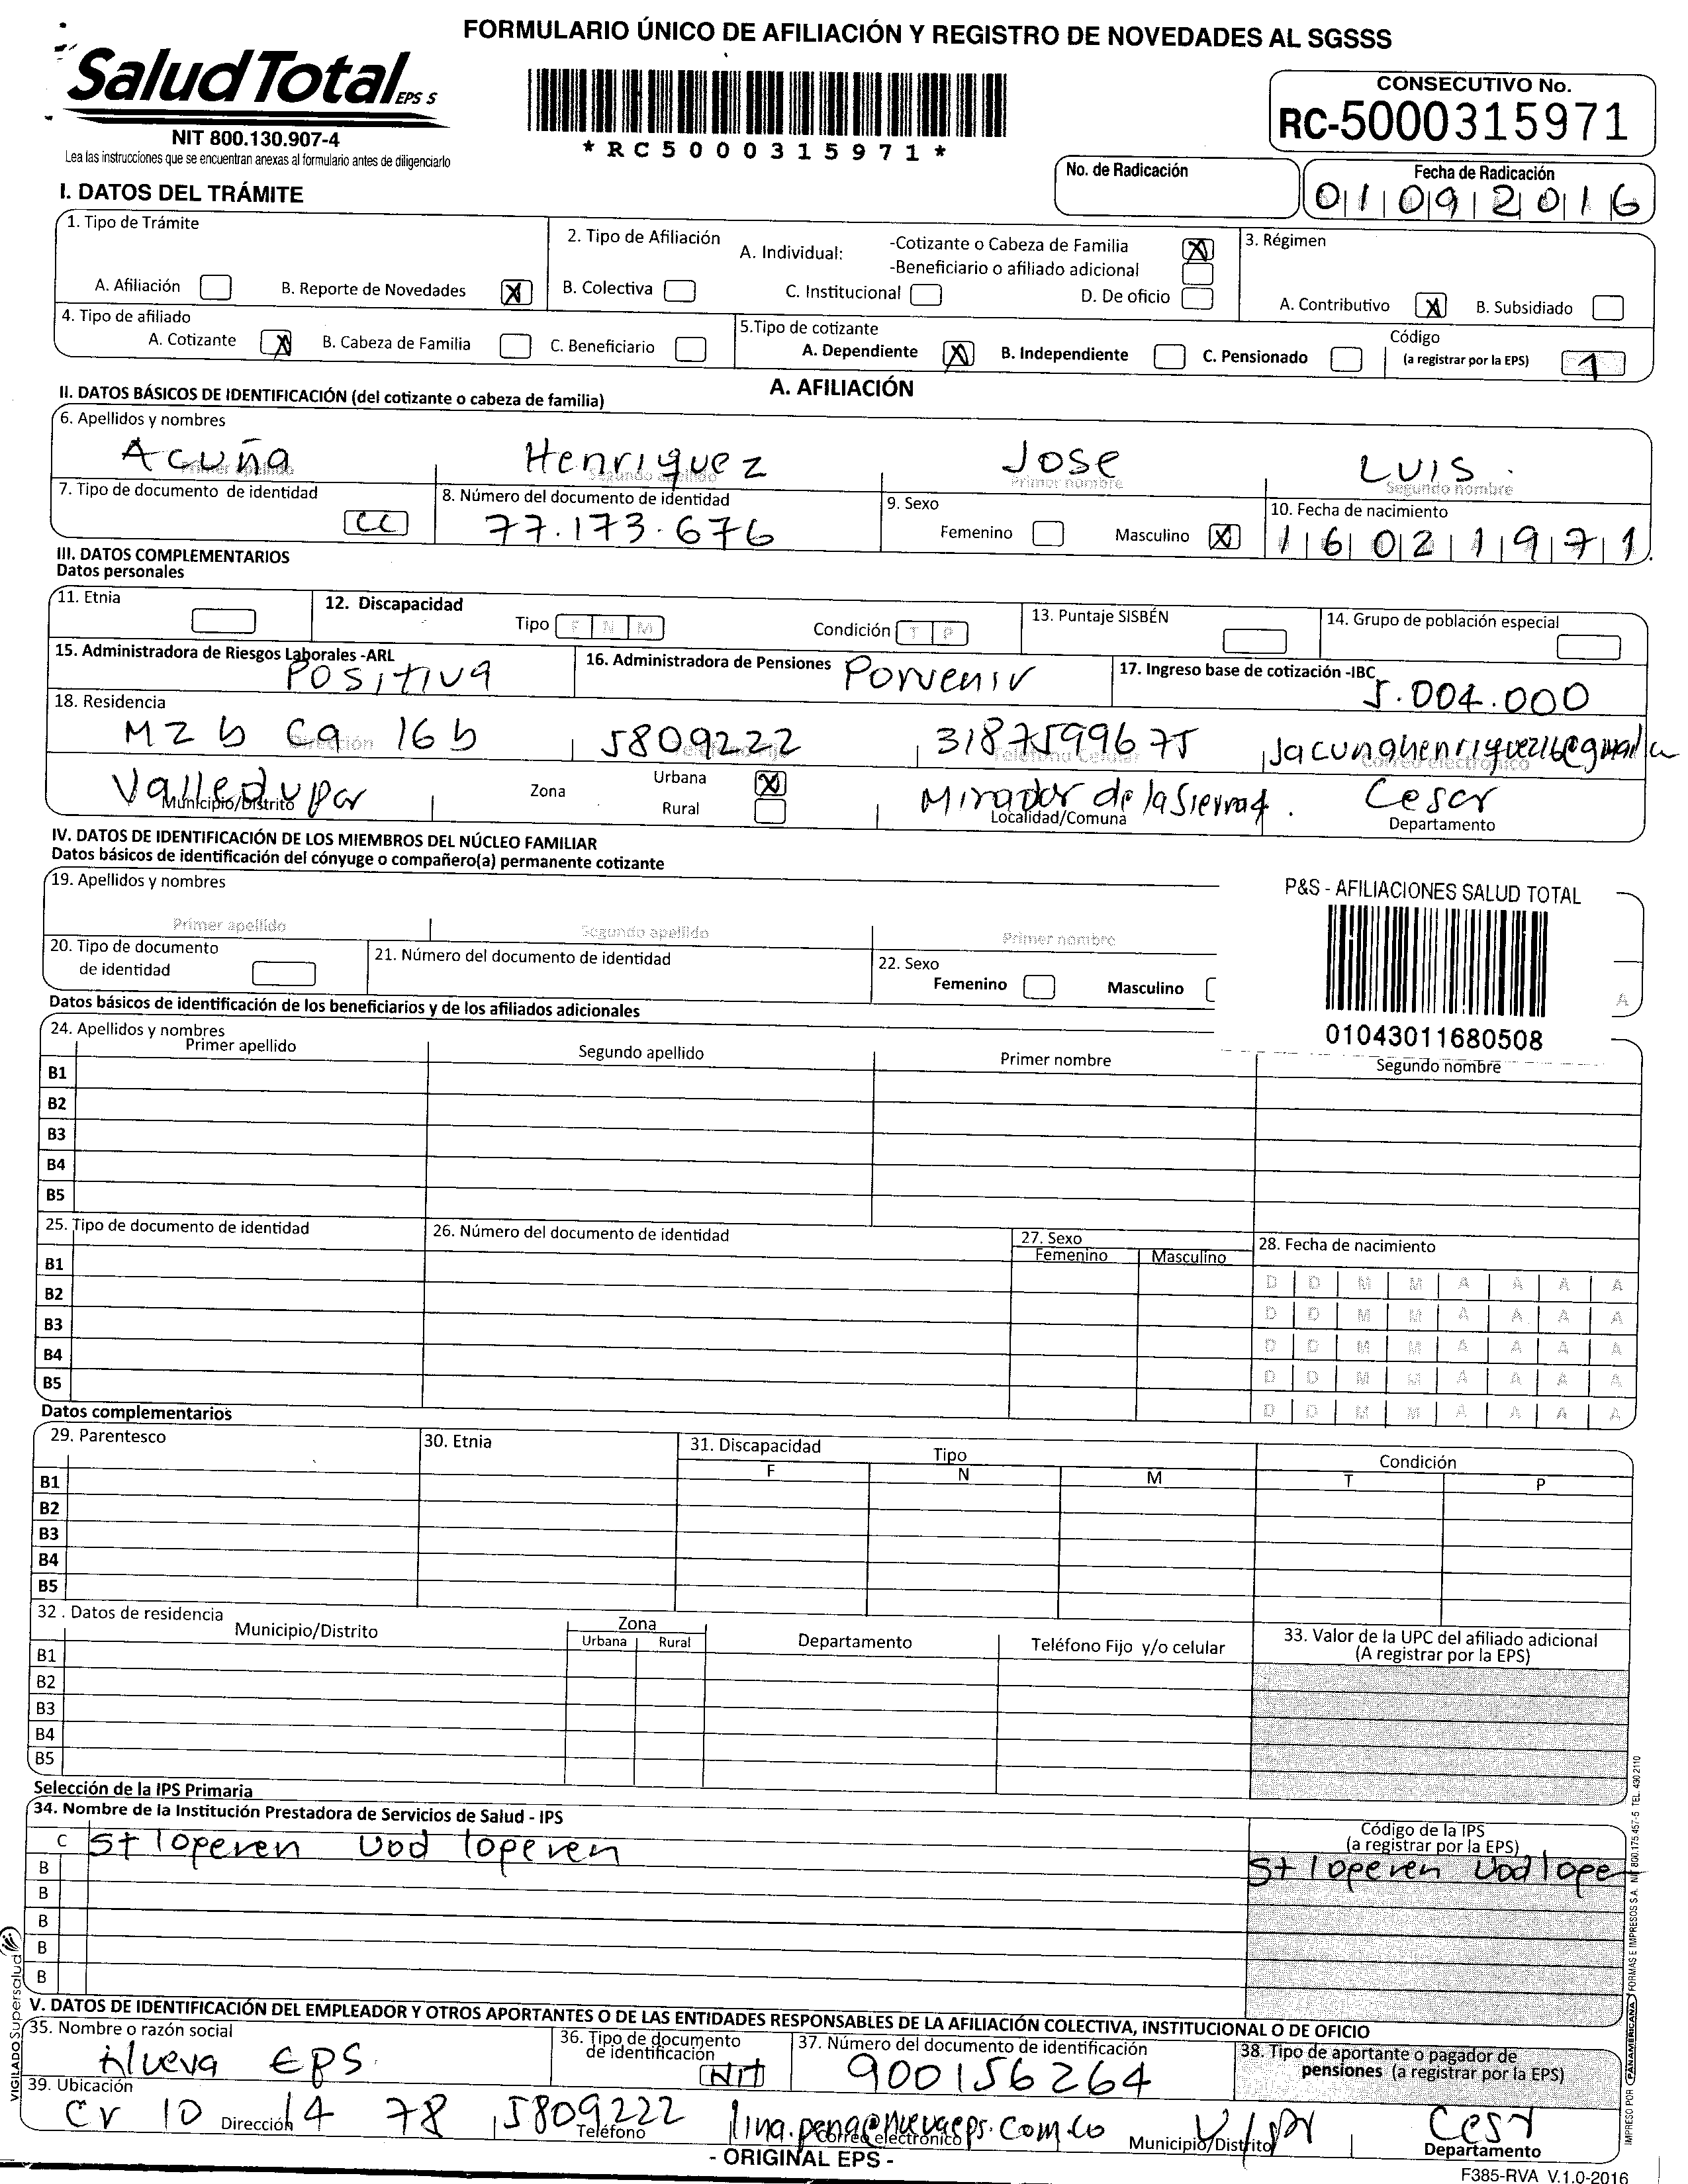 FORMULARIO ÚNICO DE AFILIACIÓN Y REGISTRO DE NOVEDADES AL SGSSS
SaludTotal EPS S
NIT 800.130.907-4
Lea las instrucciones que se encuentran anexas al formulario antes de diligenciarlo
*RC5000315971*
CONSECUTIVO No.
RC-5000315971
No. de Radicación
Fecha de Radicación
01092016
I. DATOS DEL TRÁMITE
1. Tipo de Trámite
A. Afiliación
B. Reporte de Novedades X
2. Tipo de Afiliación
A. Individual:
-Cotizante o Cabeza de Familia X
-Beneficiario o afiliado adicional
B. Colectiva
C. Institucional
D. De oficio
3. Régimen
A. Contributivo X
B. Subsidiado
4. Tipo de afiliado
A. Cotizante X
B. Cabeza de Familia
C. Beneficiario
5.Tipo de cotizante
A. Dependiente X
B. Independiente
C. Pensionado
Código
(a registrar por la EPS) 1
A. AFILIACIÓN
II. DATOS BÁSICOS DE IDENTIFICACIÓN (del cotizante o cabeza de familia)
6. Apellidos y nombres
Acuña Henriquez Jose Luis
Primer apellido Segundo apellido Primer nombre Segundo nombre
7. Tipo de documento de identidad
CC
8. Número del documento de identidad
77.173.676
9. Sexo
Femenino
Masculino X
10. Fecha de nacimiento
16021971
III. DATOS COMPLEMENTARIOS
Datos personales
11. Etnia
12. Discapacidad
Tipo F N M
Condición T P
13. Puntaje SISBÉN
14. Grupo de población especial
15. Administradora de Riesgos Laborales -ARL
Positiva
16. Administradora de Pensiones
Porvenir
17. Ingreso base de cotización -IBC
5.004.000
18. Residencia
Mz b Ca 16 b 5809222 3187599675
Dirección Teléfono Celular Correo electrónico
Valledupar
Municipio/Distrito
Zona
Urbana X
Rural
Mirador de la Sierra 4.
Localidad/Comuna
Cesar
Departamento
IV. DATOS DE IDENTIFICACIÓN DE LOS MIEMBROS DEL NÚCLEO FAMILIAR
Datos básicos de identificación del cónyuge o compañero(a) permanente cotizante
19. Apellidos y nombres
Primer apellido Segundo apellido Primer nombre
20. Tipo de documento
de identidad
21. Número del documento de identidad
22. Sexo
Femenino
Masculino
A
P&S - AFILIACIONES SALUD TOTAL
01043011680508
Datos básicos de identificación de los beneficiarios y de los afiliados adicionales
24. Apellidos y nombres
Primer apellido Segundo apellido Primer nombre Segundo nombre
B1
B2
B3
B4
B5
25. Tipo de documento de identidad
26. Número del documento de identidad
27. Sexo
Femenino Masculino
28. Fecha de nacimiento
B1 D D M M A A A A
B2 D D M M A A A A
B3 D D M M A A A A
B4 D D M M A A A A
B5 D D M M A A A A
Datos complementarios
29. Parentesco
30. Etnia
31. Discapacidad
Tipo
F N M
Condición
T P
B1
B2
B3
B4
B5
32 . Datos de residencia
Municipio/Distrito
Zona
Urbana Rural
Departamento
Teléfono Fijo y/o celular
33. Valor de la UPC del afiliado adicional
(A registrar por la EPS)
B1
B2
B3
B4
B5
Selección de la IPS Primaria
34. Nombre de la Institución Prestadora de Servicios de Salud - IPS
Código de la IPS
(a registrar por la EPS)
C St loperen Uod loperen
St loperen Uod lope
B
B
B
B
B
V. DATOS DE IDENTIFICACIÓN DEL EMPLEADOR Y OTROS APORTANTES O DE LAS ENTIDADES RESPONSABLES DE LA AFILIACIÓN COLECTIVA, INSTITUCIONAL O DE OFICIO
35. Nombre o razón social
Nueva EPS
36. Tipo de documento
de identificación
NIT
37. Número del documento de identificación
900156264
38. Tipo de aportante o pagador de
pensiones (a registrar por la EPS)
39. Ubicación
Cr 10 14 78 5809222 lina.pena@nuevaeps.com.co
Dirección Teléfono Correo electrónico Municipio/Distrito Departamento
- ORIGINAL EPS -
F385-RVA V.1.0-2016
VIGILADO Supersalud
IMPRESO POR PANAMERICANA FORMAS E IMPRESOS S.A. NIT 800.175.457-5 TEL. 430 2110